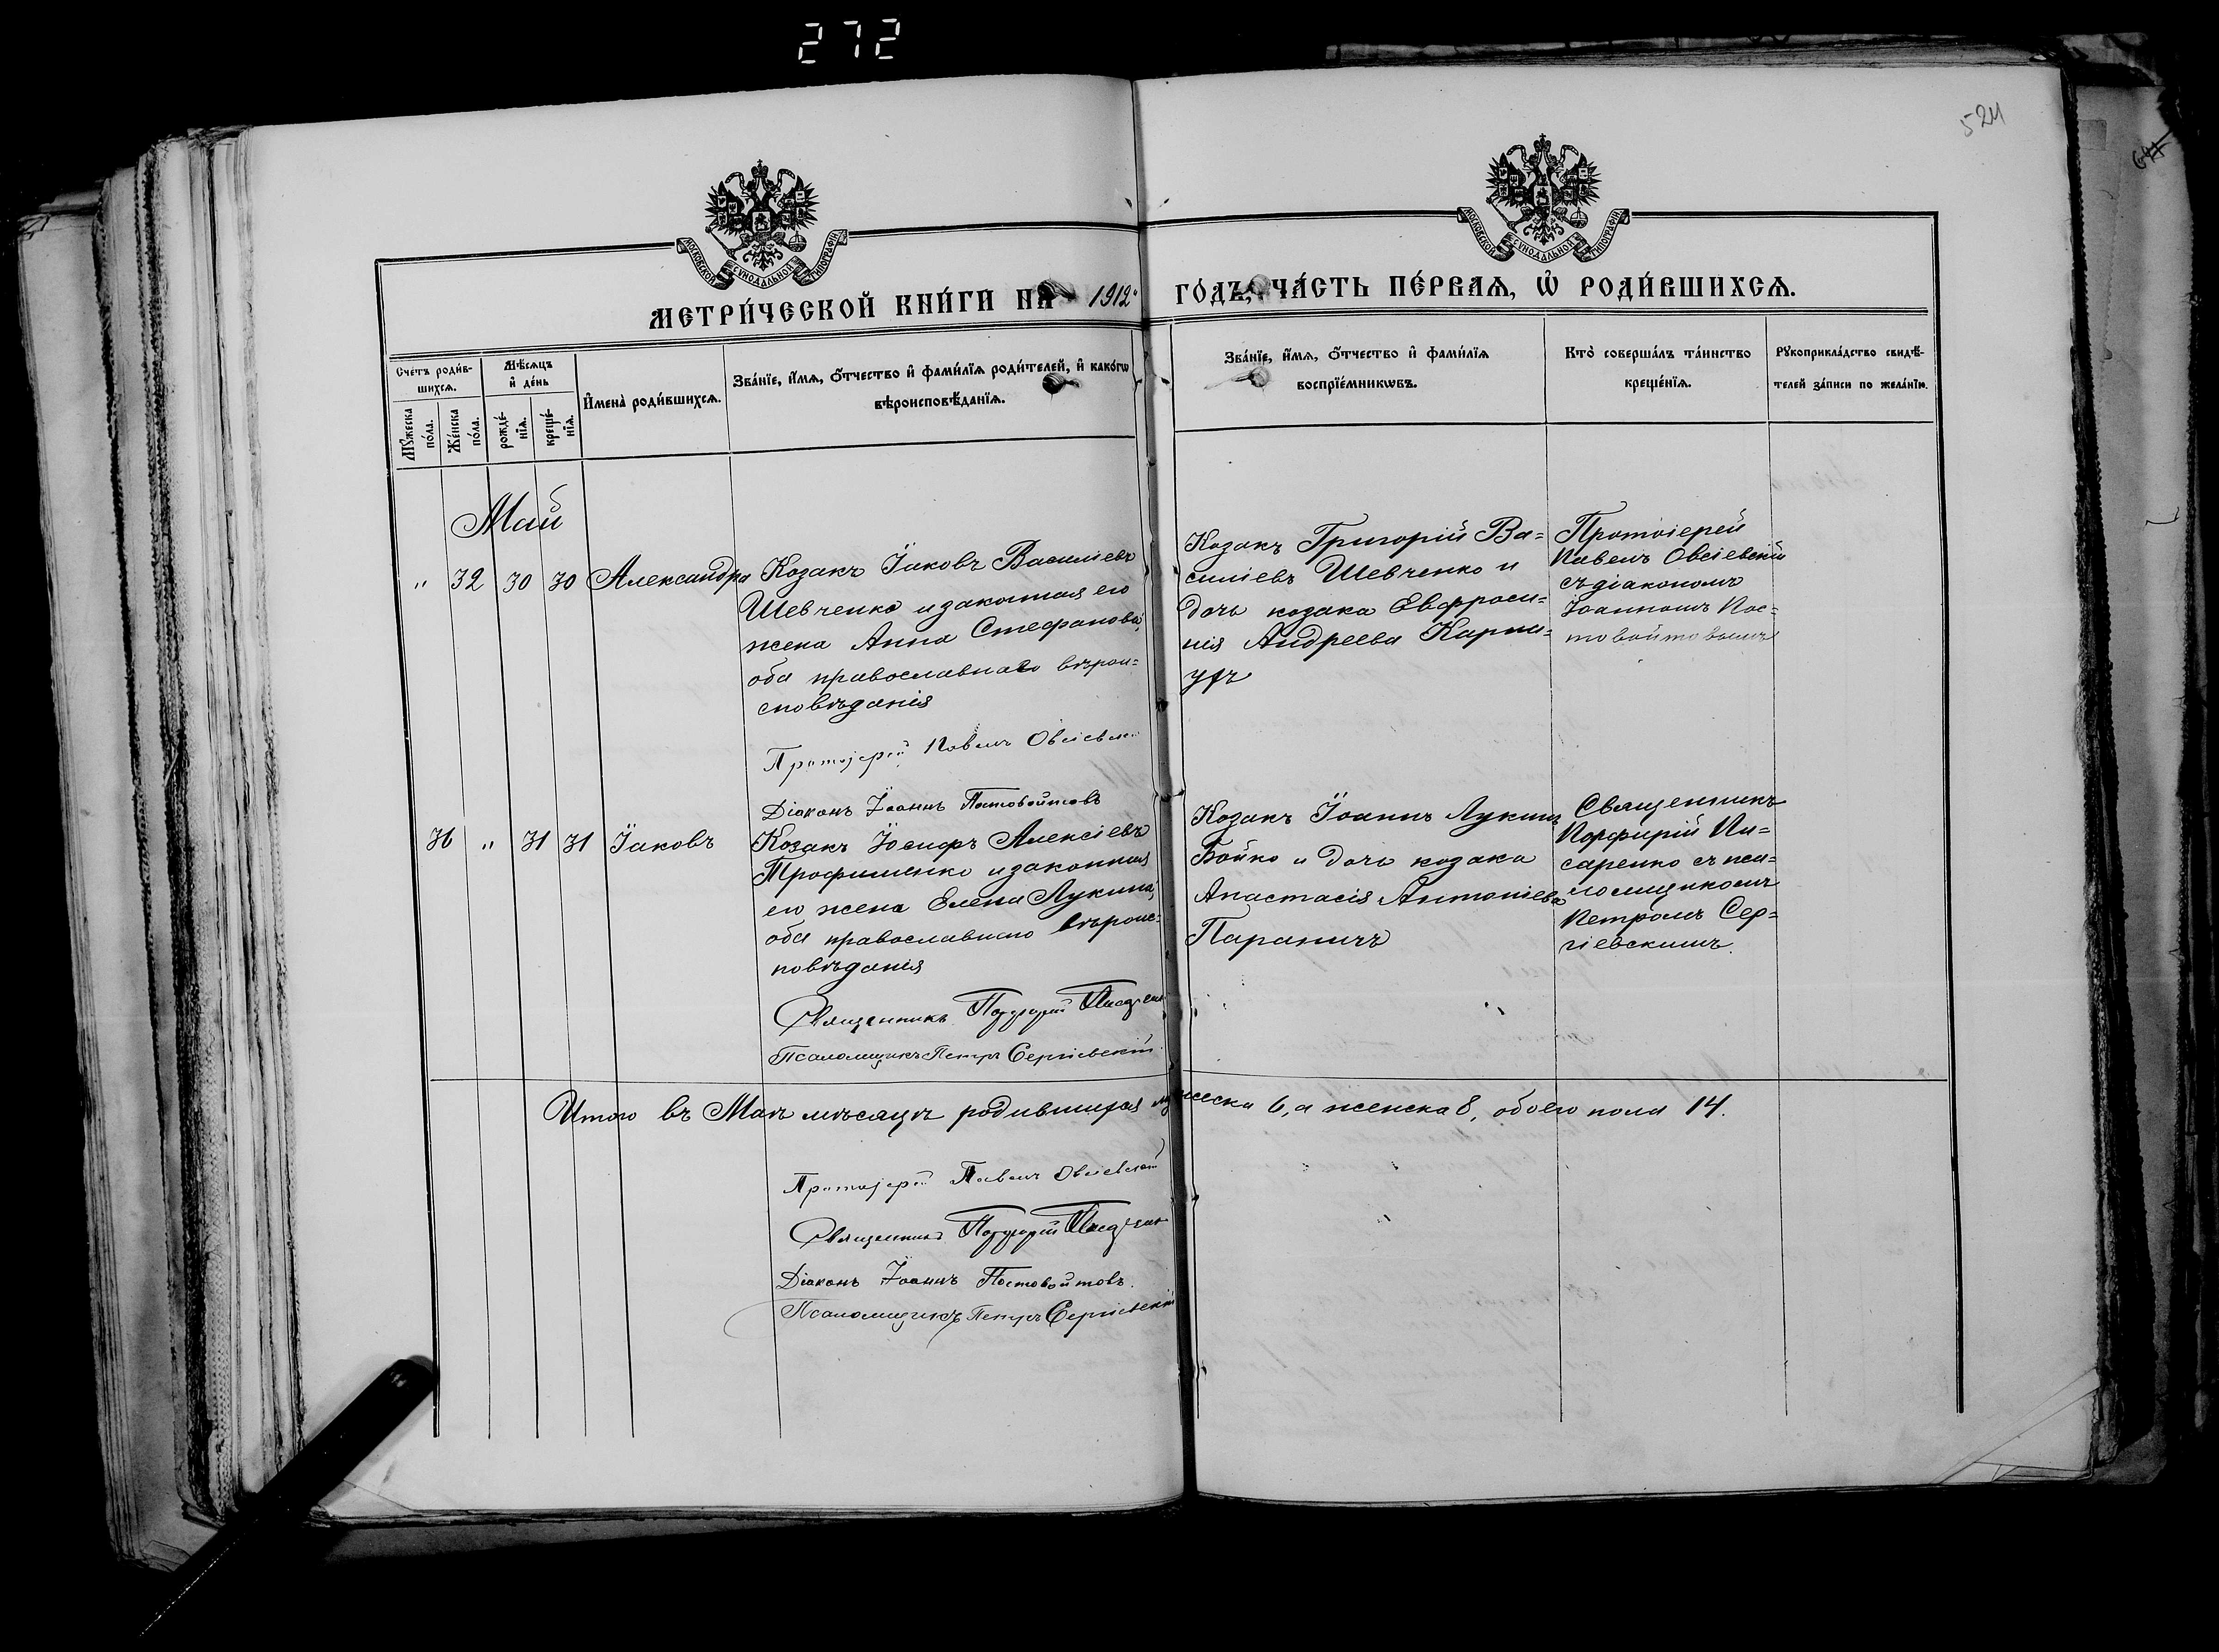 272
524
МОСКОВСКОЙ СѴНОДАЛЬНОЙ ТИПОГРАФІИ
МОСКОВСКОЙ СѴНОДАЛЬНОЙ ТИПОГРАФІИ
МЕТРИ́ЧЕСКОЙ КНИ́ГИ НА 1912 ГО́ДЪ, ЧА́СТЬ ПЕ́РВАѦ, Ѡ҆ РОДИ́ВШИХСѦ.
Сче́тъ роди́в-
шихсѧ.
Мꙋ́жеска по́ла.
Же́нска по́ла.
Мѣ́сѧцъ
и҆ де́нь
рожде́-
нїѧ.
креще́-
нїѧ.
И҆мена̀ роди́вшихсѧ.
Зва́нїе, и҆́мѧ, ѻ҆́тчество и҆ фами́лїѧ роди́телей, и҆ како́гѡ
вѣроисповѣ́данїѧ.
Зва́нїе, и҆́мѧ, ѻ҆́тчество и҆ фами́лїѧ
воспрїе́мникѡвъ.
Кто̀ соверша́лъ та́инство
креще́нїѧ.
Рꙋкоприкла́дство свидѣ́-
телей за́писи по жела́нїю.
Май
" 32 30 30 Александра
Козакъ Іаковъ Василіевъ
Шевченко и законная его
жена Анна Стефанова,
оба православнаго вѣрои=
сповѣданія
Протоіерей Павелъ Овсіевскій
Діаконъ Іоаннъ Постовойтовъ
Козакъ Григорій Ва=
силіевъ Шевченко и
дочь козака Евфроси=
нія Андреева
Протоіерей
Павелъ Овсіевскій
съ діакономъ
Іоанномъ Пос=
товойтовымъ
36 " 31 31 Іаковъ
Козакъ Іосифъ Алексіевъ
Трофименко и законная
его жена Елена Лукина,
оба православнаго вѣроис=
повѣданія
Священникъ Порфирій Писаренко
Псаломщикъ Петръ Сергіевскій
Козакъ Іоаннъ Лукинъ
Бойко и дочь козака
Анастасія Антоніева
Параничъ
Священникъ
Порфирій Пи=
саренко съ пса=
ломщикомъ
Петромъ Сер=
гіевскимъ.
Итого въ Маѣ мѣсяцѣ родившихся мужеска 6, а женска 8, обоего пола 14.
Протоіерей Павелъ Овсіевскій
Священникъ Порфирій Писаренко
Діаконъ Іоаннъ Постовойтовъ.
Псаломщикъ Петръ Сергіевскій